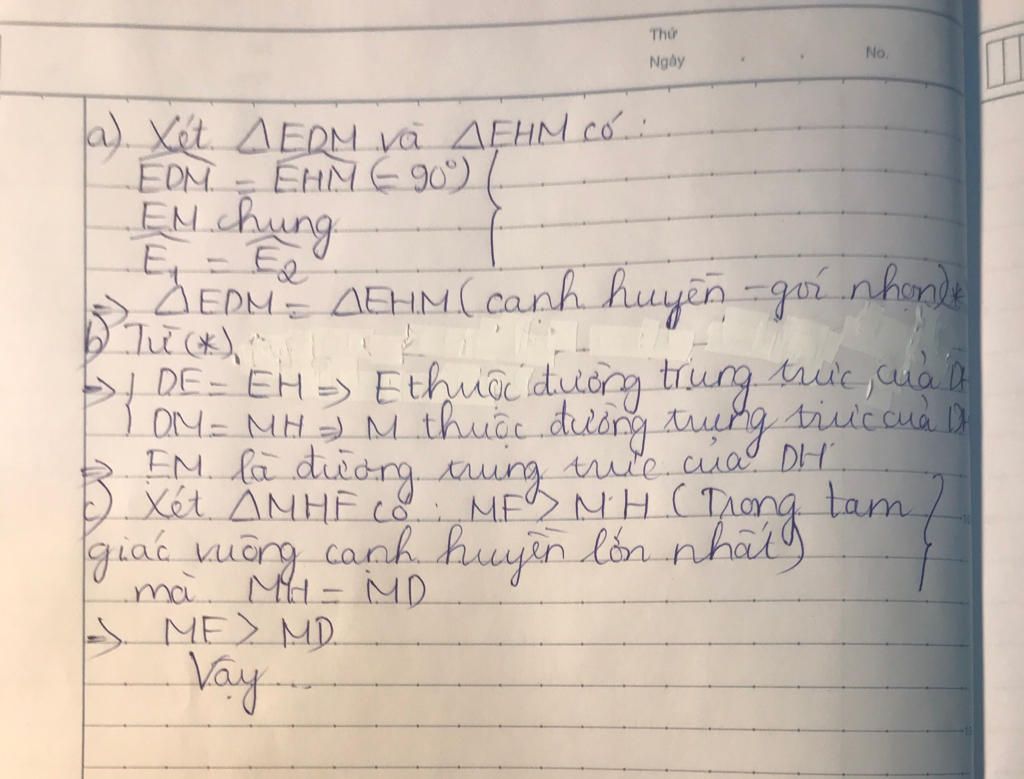 Thứ
Ngày . . No.
a) Xét ΔEDM và ΔEHM có:
EDM = EHM (= 90°)
EM chung
E1 = E2
=> ΔEDM = ΔEHM (cạnh huyền - goí nhọn)*
b) Từ (*)
=> DE = EH => E thuộc đường trung trực của DH
DM = MH => M thuộc đường trung trực của DH
=> EM là đường trung trực của DH
c) Xét ΔMHF có: MF > MH (Trong tam
giác vuông cạnh huyền lớn nhất)
mà MH = MD
=> MF > MD
Vậy ...